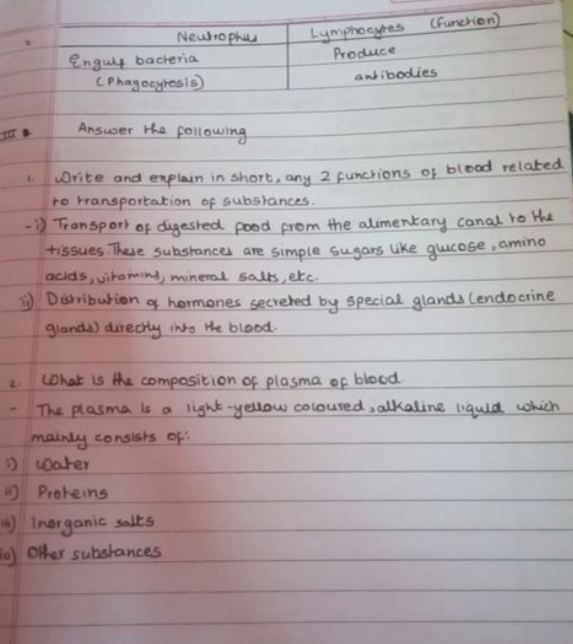 2. Neutrophils Lymphocytes (function)
Engulf bacteria Produce
(Phagocytosis) antibodies
III Answer the following
1. Write and explain in short, any 2 functions of blood related
to transportation of substances.
- i) Transport of digested food from the alimentary canal to the
tissues. These substances are simple sugars like glucose, amino
acids, vitamins, mineral salts, etc.
ii) Distribution of hormones secreted by special glands (endocrine
glands) directly into the blood.
2. What is the composition of plasma of blood
- The plasma is a light-yellow coloured, alkaline liquid which
mainly consists of:
i) Water
ii) Proteins
iii) Inorganic salts
iv) Other substances